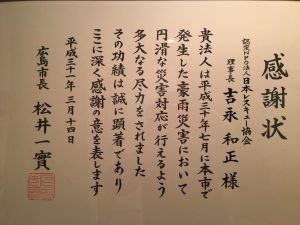 感謝状
認定NPO法人日本レスキュー協会
理事長
吉永和正様
貴法人は平成三十年七月に本市で
発生した豪雨災害において
円滑な災害対応が行えるよう
多大なる尽力をされました
その功績は誠に顕著であり
ここに深く感謝の意を表します
平成三十一年三月十四日
広島市長 松井一實